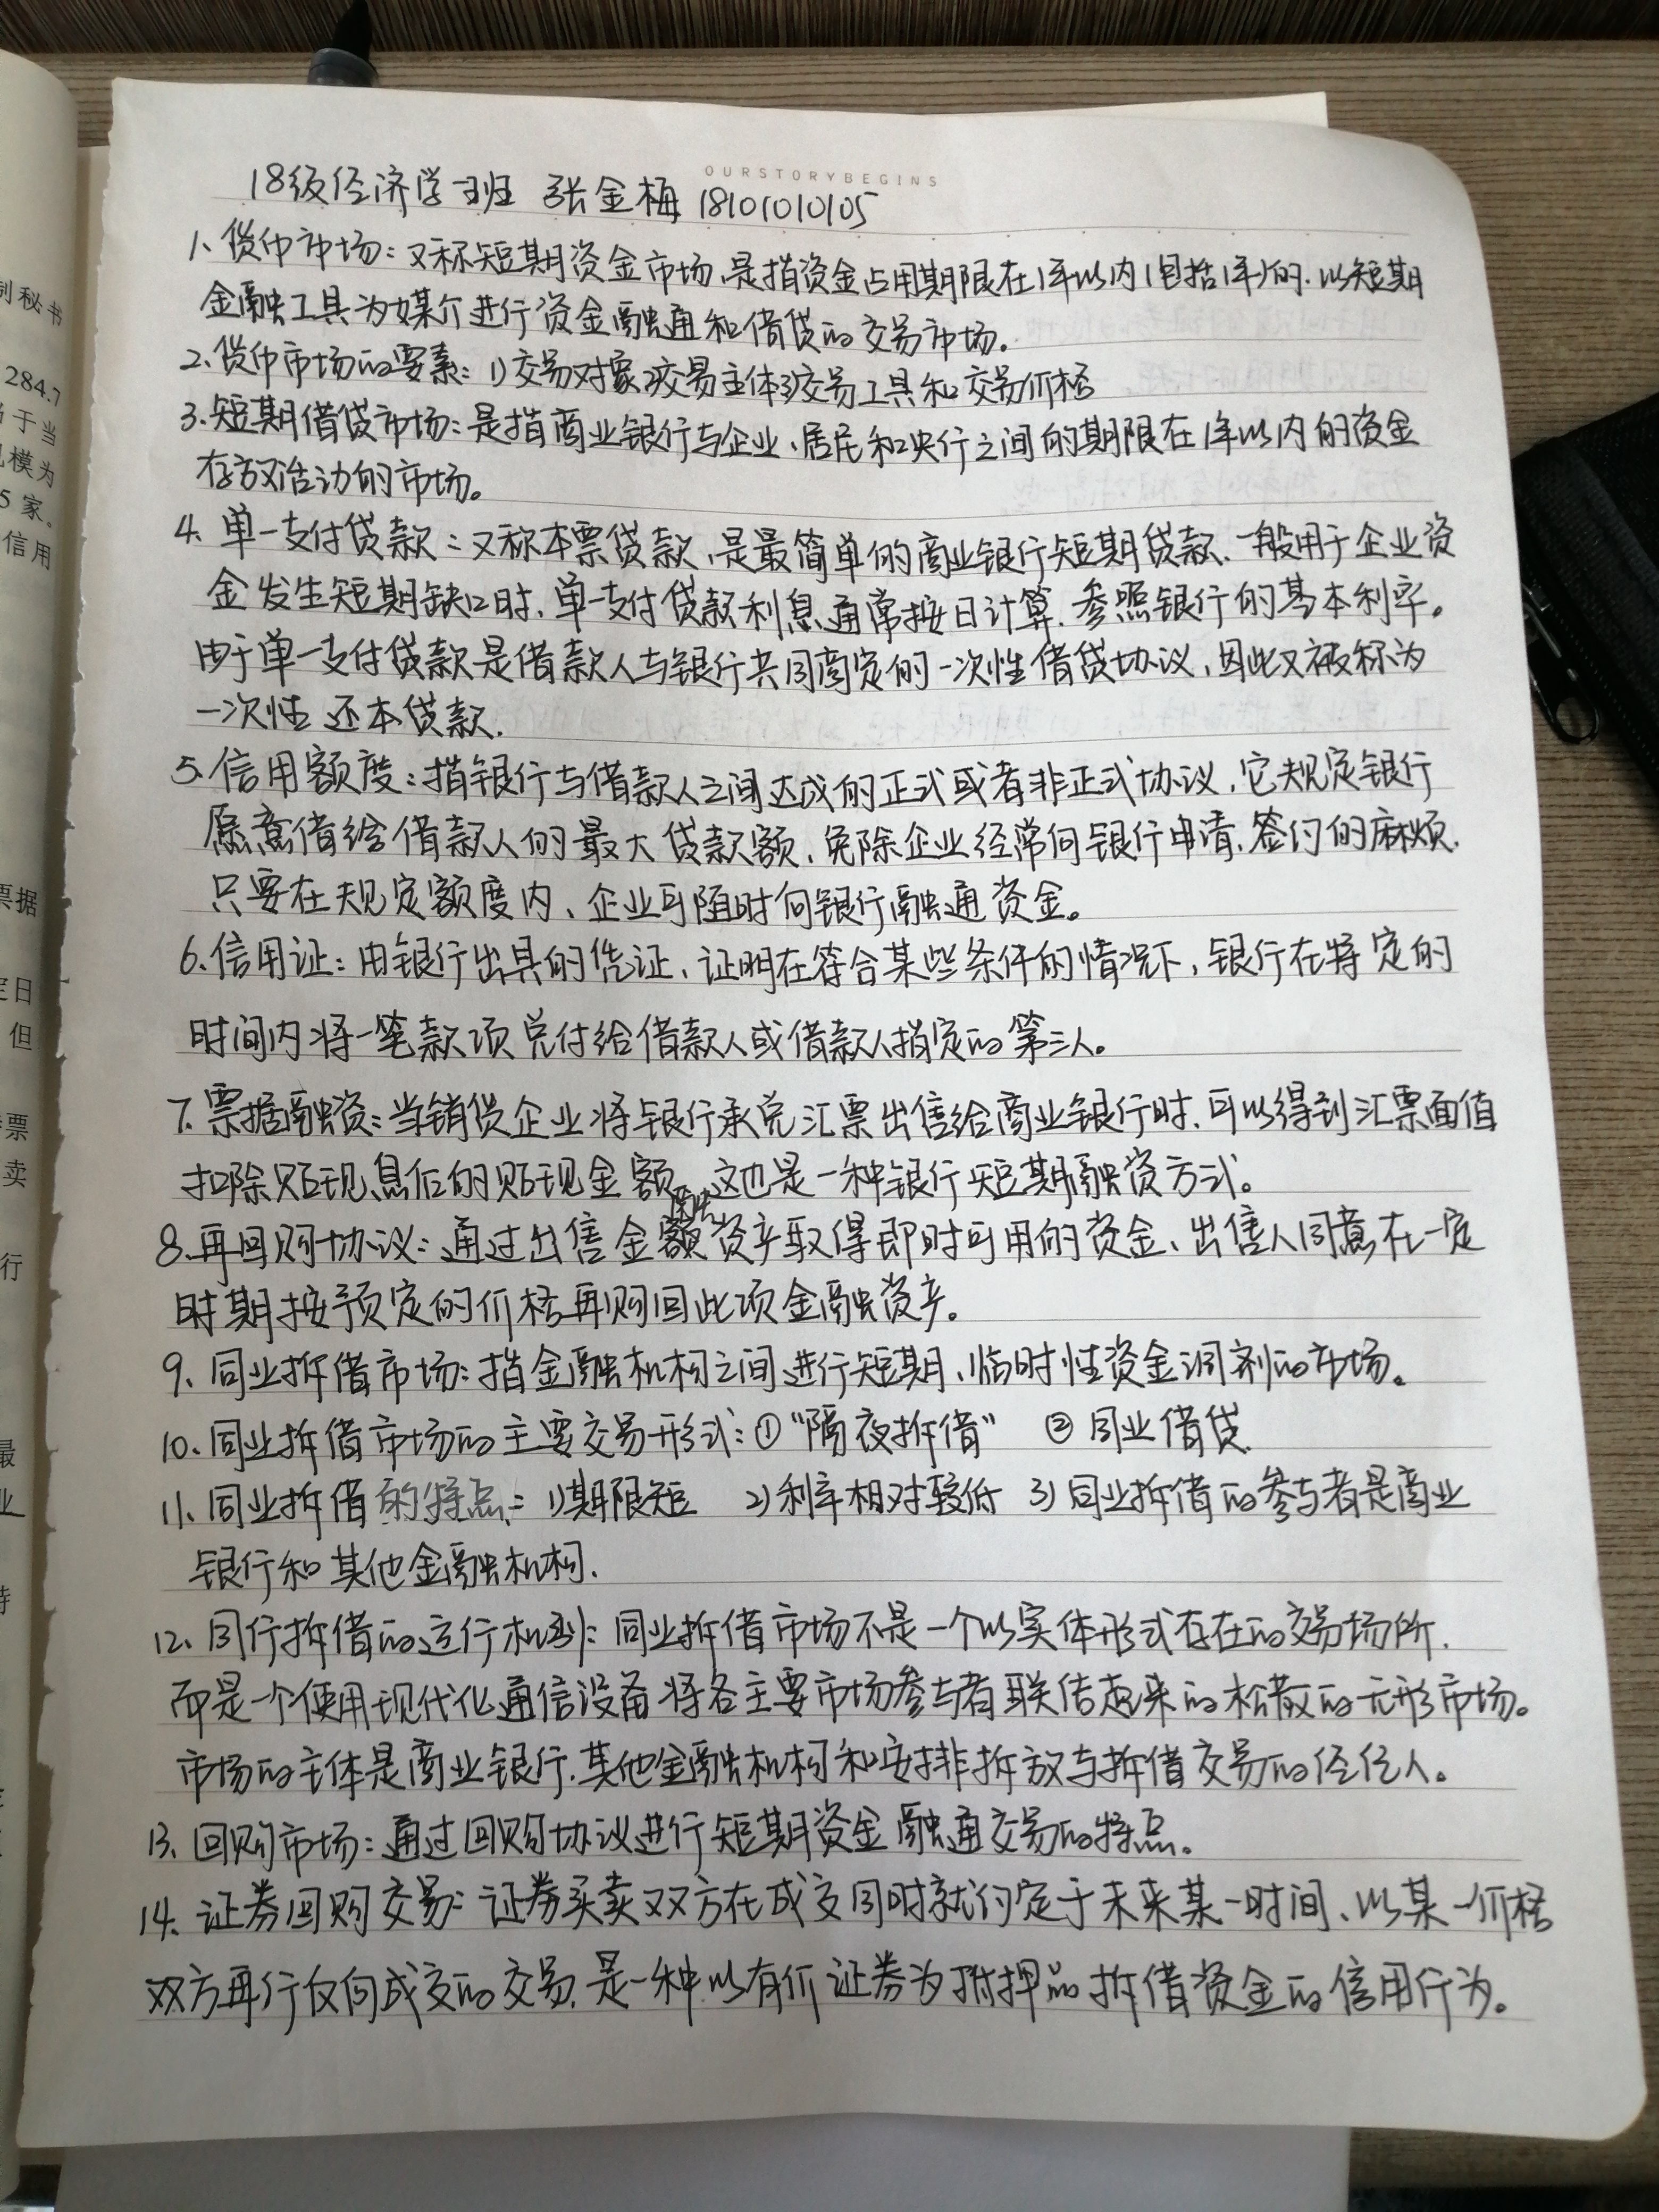 OURSTORYBEGINS
18级经济学1班 张金梅 18101010105
1、货币市场：又称短期资金市场，是指资金占用期限在1年以内（包括1年）的，以短期
金融工具为媒介进行资金融通和借贷的交易市场。
2、货币市场的要素：1）交易对象2）交易主体3）交易工具和交易价格
3、短期借贷市场：是指商业银行与企业、居民和央行之间的期限在1年以内的资金
存放活动的市场。
4、单一支付贷款：又称本票贷款，是最简单的商业银行短期贷款，一般用于企业资
金发生短期缺口时，单一支付贷款利息通常按日计算，参照银行的基本利率。
由于单一支付贷款是借款人与银行共同商定的一次性借贷协议，因此又被称为
一次性还本贷款.
5、信用额度：指银行与借款人之间达成的正式或者非正式协议，它规定银行
愿意借给借款人的最大贷款额，免除企业经常向银行申请、签约的麻烦，
只要在规定额度内，企业可随时向银行融通资金。
6、信用证：由银行出具的凭证，证明在符合某些条件的情况下，银行在特定的
时间内将一笔款项兑付给借款人或借款人指定的第三人。
7、票据融资：当销货企业将银行承兑汇票出售给商业银行时，可以得到汇票面值
扣除贴现息后的贴现金额，这也是一种银行短期融资方式。
8、再回购协议：通过出售金融资产取得即时可用的资金，出售人同意在一定
时期按预定的价格再购回此项金融资产。
9、同业拆借市场：指金融机构之间进行短期、临时性资金调剂的市场。
10、同业拆借市场的主要交易形式：①“隔夜拆借” ②同业借贷.
11、同业拆借的特点：1)期限短 2)利率相对较低 3)同业拆借的参与者是商业
银行和其他金融机构.
12、同行拆借的运行机制：同业拆借市场不是一个以实体形式存在的交易场所，
而是一个使用现代化通信设备将各主要市场参与者联结起来的松散的无形市场。
市场的主体是商业银行、其他金融机构和安排拆放与拆借交易的经纪人。
13、回购市场：通过回购协议进行短期资金融通交易的特点。
14、证券回购交易：证券买卖双方在成交同时就约定于未来某一时间、以某一价格
双方再行反向成交的交易，是一种以有价证券为抵押品拆借资金的信用行为。
制秘书
284.7
于当
模为
5家。
信用
票据
定日
但
票
卖
行
最
业
特